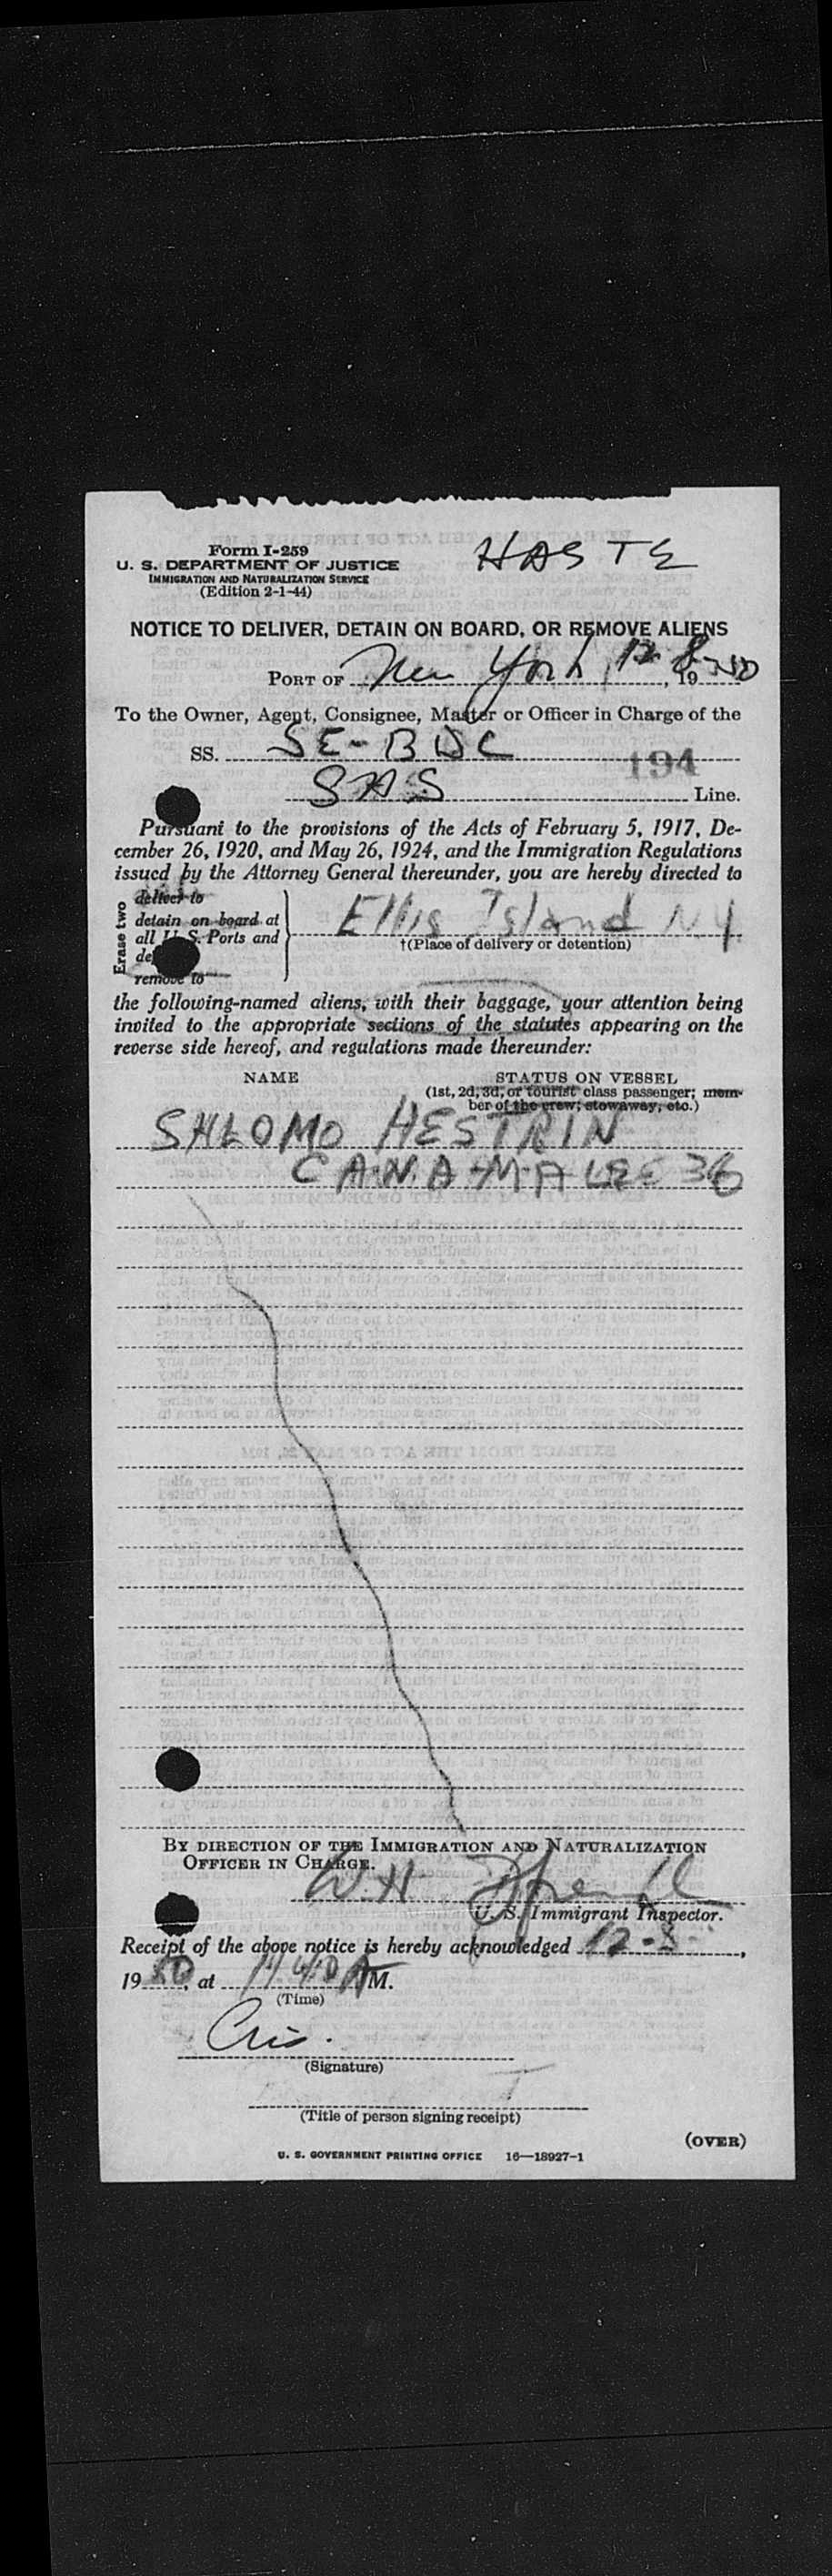 Form I-259
U. S. DEPARTMENT OF JUSTICE
IMMIGRATION AND NATURALIZATION SERVICE
(Edition 2-1-44)
HASTE
NOTICE TO DELIVER, DETAIN ON BOARD, OR REMOVE ALIENS
PORT OF New York, 12-8-, 1950
To the Owner, Agent, Consignee, Master or Officer in Charge of the
SS. SE-BDC
194
SAS Line.
Pursuant to the provisions of the Acts of February 5, 1917, De-
cember 26, 1920, and May 26, 1924, and the Immigration Regulations
issued by the Attorney General thereunder, you are hereby directed to
Erase two
deliver to
detain on board at
all U. S. Ports and
remove to
Ellis Island NY.
†(Place of delivery or detention)
the following-named aliens, with their baggage, your attention being
invited to the appropriate sections of the statutes appearing on the
reverse side hereof, and regulations made thereunder:
NAME STATUS ON VESSEL
(1st, 2d, 3d, or tourist class passenger; mem-
ber of the crew; stowaway, etc.)
SHLOMO HESTRIN
CANA-MALE 36
BY DIRECTION OF THE IMMIGRATION AND NATURALIZATION
OFFICER IN CHARGE.
W.H.
U. S. Immigrant Inspector.
Receipt of the above notice is hereby acknowledged 12-8-,
1950, at 11 40 AM.
(Time)
(Signature)
(Title of person signing receipt)
(OVER)
U. S. GOVERNMENT PRINTING OFFICE 16—18927-1